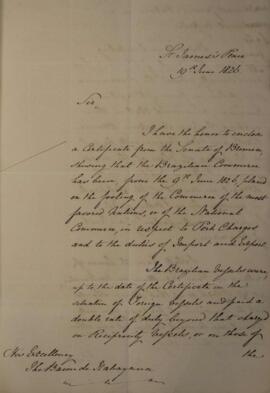 St James's Place
19th June 1826
Sir,
I have the honor to enclose
a Certificate from the Senate of Bremen,
shewing that the Brazilian Commerce
has been, from the 9th June 1826, placed
on the footing of the Commerce of the most
favored Nations, or of the National
Commerce, in respect to Port Charges
and to the duties of Import and Export.
The Brazilian Vessels were,
up to the date of the Certificate in the
situation of Foreign Vessels and paid a
double rate of duty beyond that charged
on Reciprocity Vessels, or on those of
the
His Excellency
The Baron de Itabayana